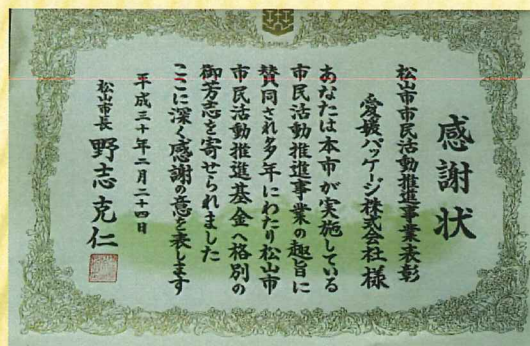 感謝状
松山市市民活動推進事業表彰
愛媛パッケージ株式会社様
あなたは本市が実施している
市民活動推進事業の趣旨に
賛同され多年にわたり松山市
市民活動推進基金へ格別の
御芳志を寄せられました
ここに深く感謝の意を表します
平成三十年二月二十四日
松山市長 野志克仁